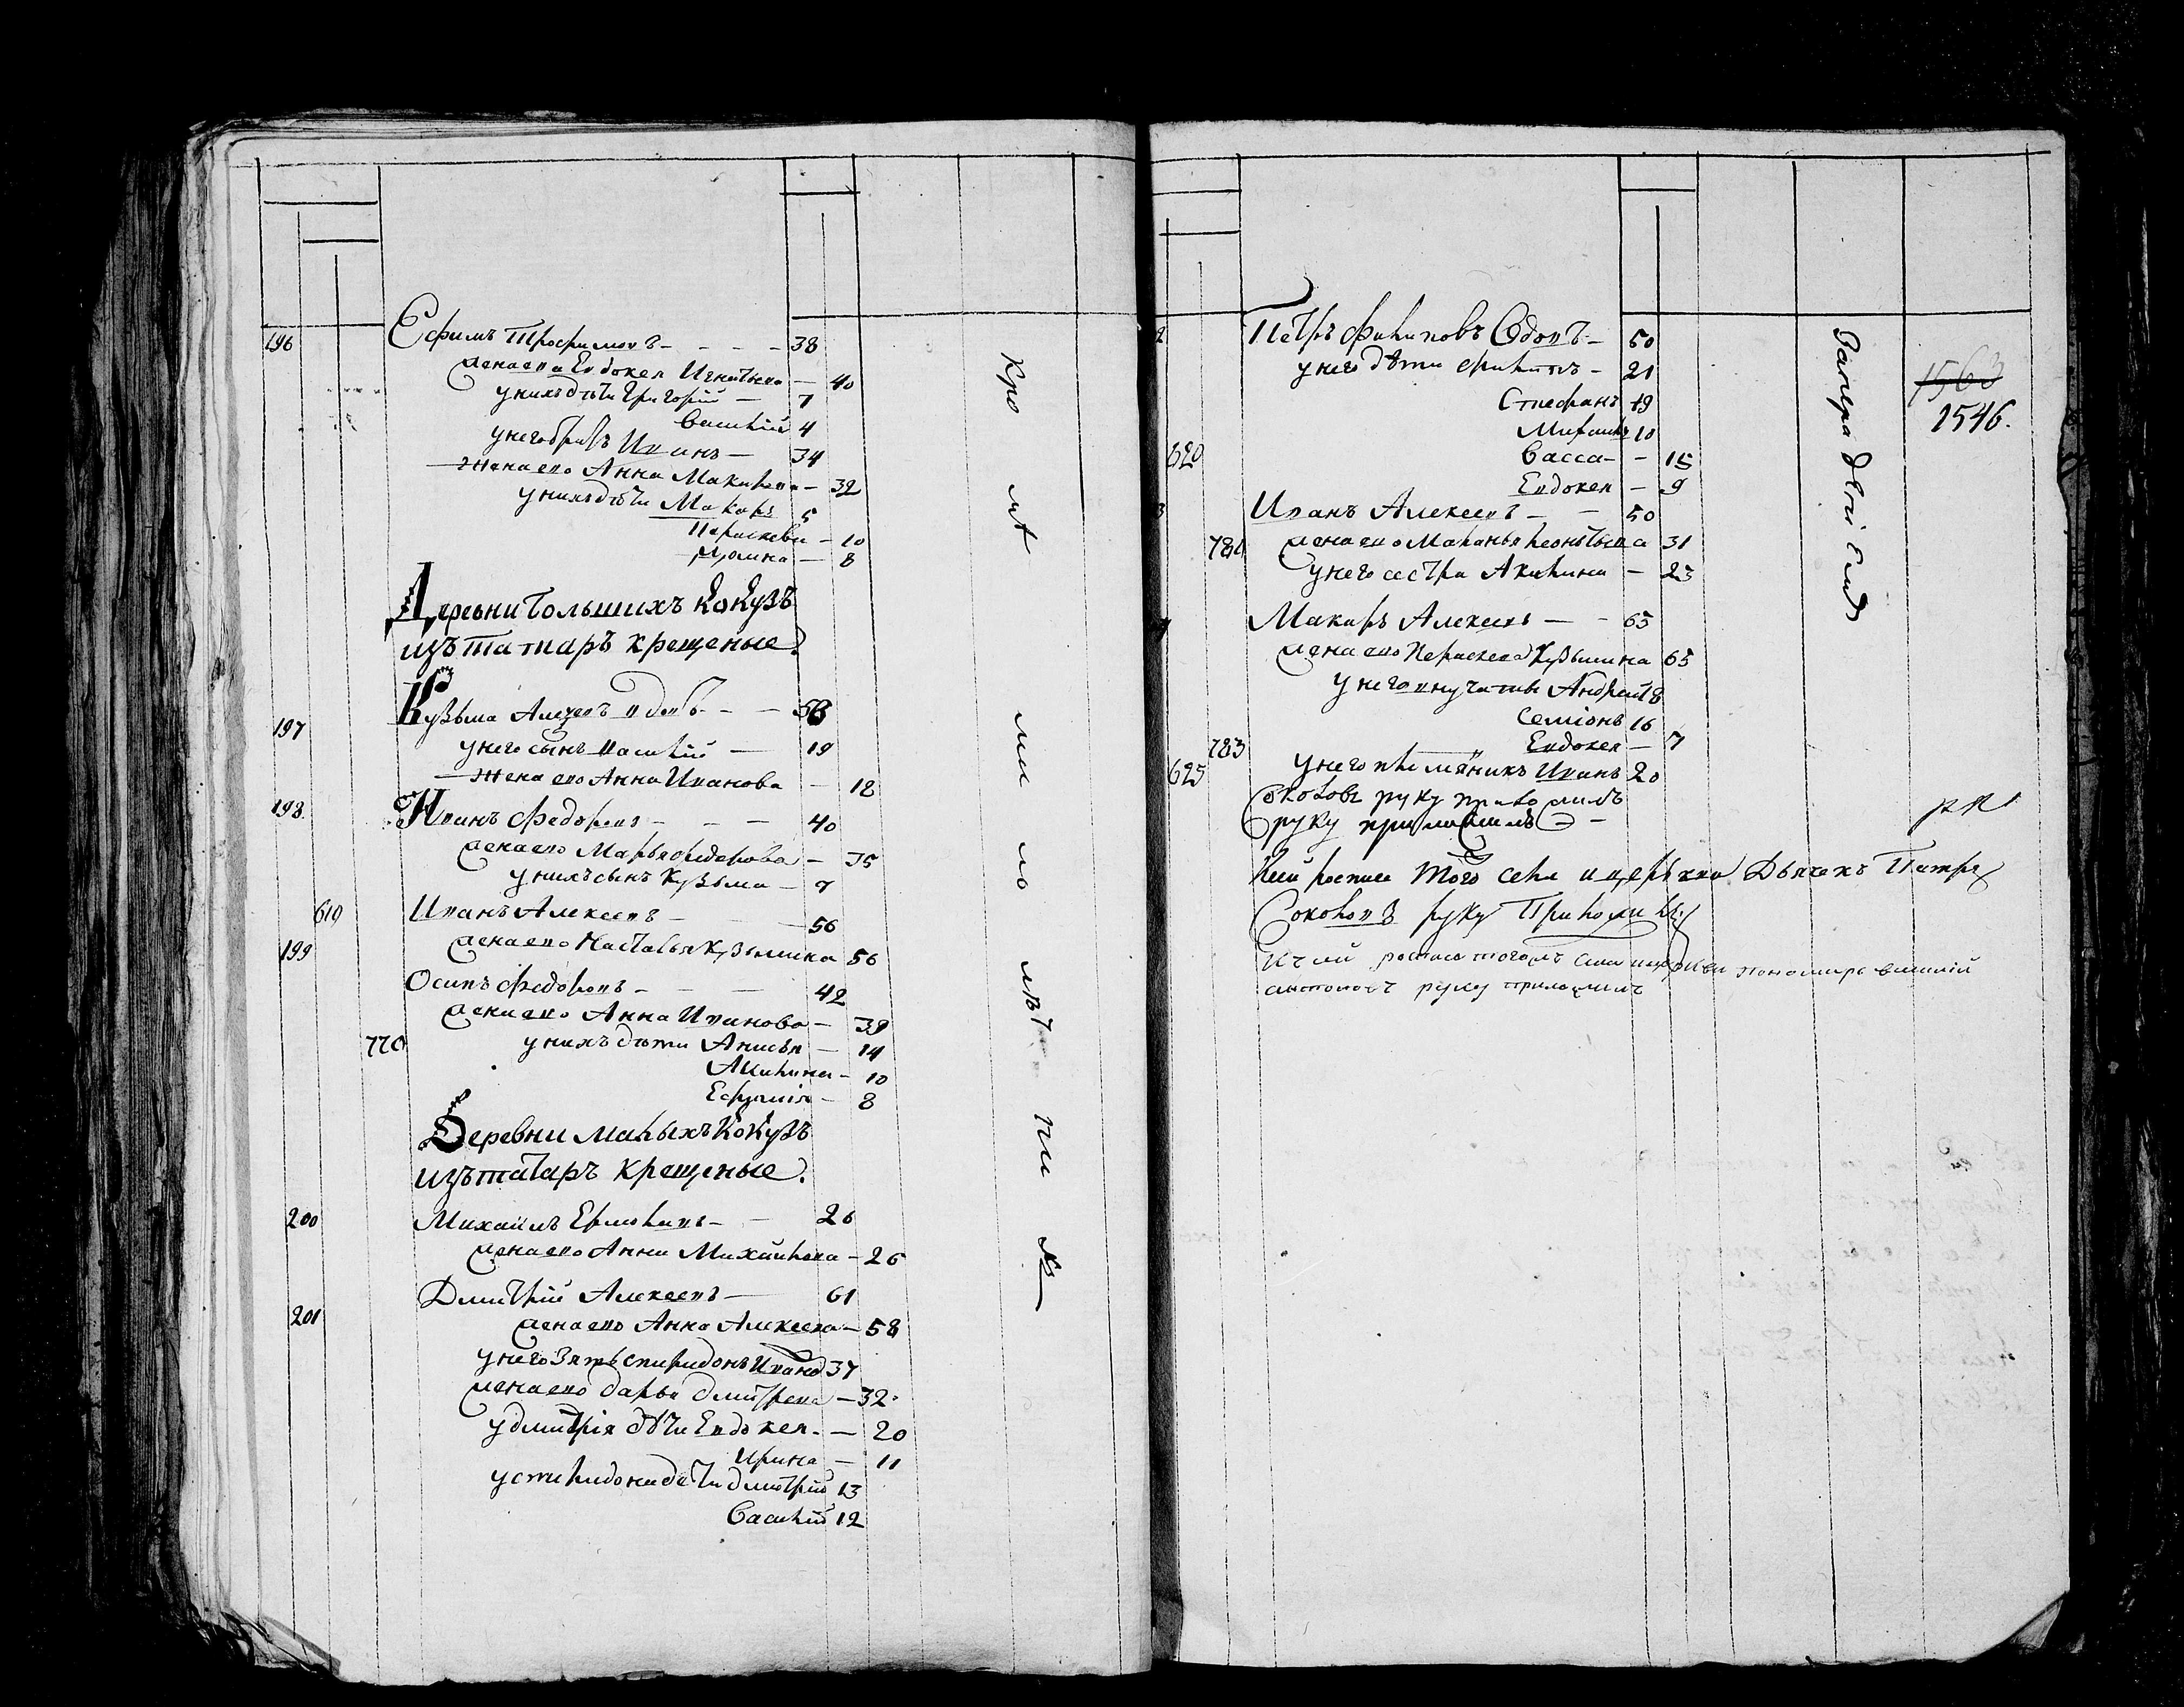 196 Ефимъ Трофимовъ - - - - 38
жена ево Евдокея Игнатьева — 40
у нихъ дѣти Григорiй — 7
Василiй 4
у него братъ Иванъ — 34
жена ево Анна Макарова — 32
у нихъ дѣти Макаръ 5
Параскева — 10
8
Деревни большихъ Кокузъ
изъ татаръ крещеные
197 Кузьма Алекеевъ вдовъ - - — 58
у него сынъ василiй — 19
жена ево Анна Иванова — 18
198 Иванъ Федоровъ - — — 40
жена ево Марья Федорова — 35
у нихъ сынъ Кузьма — 7
619 Иванъ Алексеевъ - — — 56
199 жена ево Настасья Кузьмина 56
Осипъ Федоровъ - — — 42
жена ево Анна Иванова — 39
770 у нихъ дѣти Анисья — 14
Акилина - 10
Ефимiя — 8
Деревни малыхъ Кокузъ
изъ татаръ крещеные
200 Михаилъ Ермолаевъ - — 26
жена ево Анна Михайлова — 26
201 Дмитрiй Алексеевъ — 61
жена ево Анна Алексеева — 58
у него зять спиридонъ Ивано 37
жена ево дарья дмитрева — 32
у дмитрiя дѣти Евдокея - — 20
Ирина — 11
у спиридона дѣти дмитрiй 13
Василiй 12
Кро мѣ ми ло
2 Петръ филиповъ вдовъ - 50
у него дѣти филипъ - 21
Стефанъ 19
10
620 Васса - - 15
Евдокея — 9
3 Иванъ Алексеевъ — — 50
781 жена ево Маланья леонтьева 31
у него сестра Акилина — 23
Макаръ Алексеевъ — - 65
жена ево Параскева Кузьмина 65
у него внучаты Андрей 18
Семiонъ 16
783 Евдокея — 7
625 у него племянникъ Иванъ 20
руку
руку приложилъ
1563
1546.
Ксей росписе того села и церькви Дьячекъ Петръ
Соколовъ руку Приложилъ
Къ сей росписе тогожъ села церкви пономарь василiй
антоновъ руку приложилъ